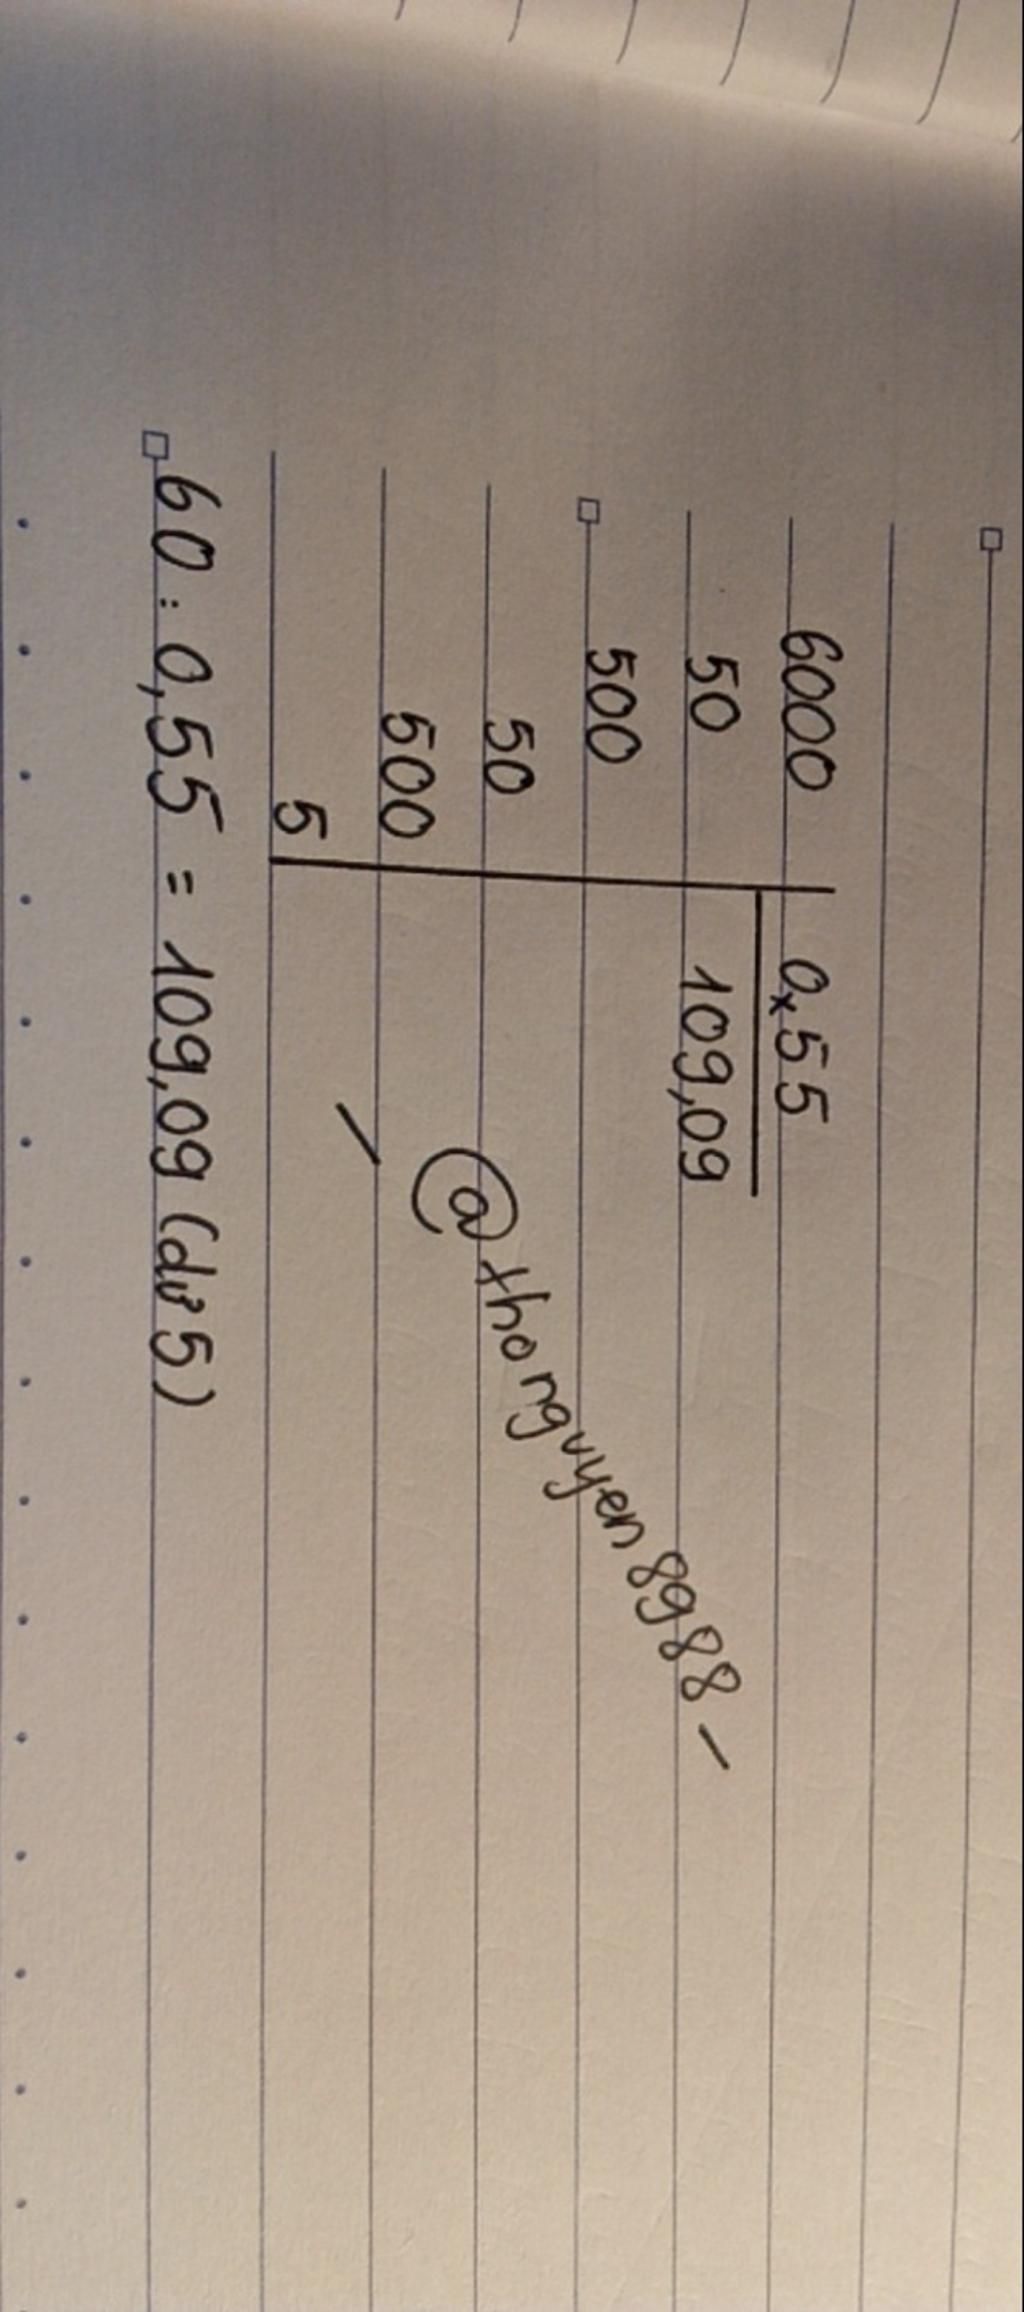 6000 0,55
50 109,09
500
50
500
5
@thonguyen8988
60 : 0,55 = 109,09 (dư 5)